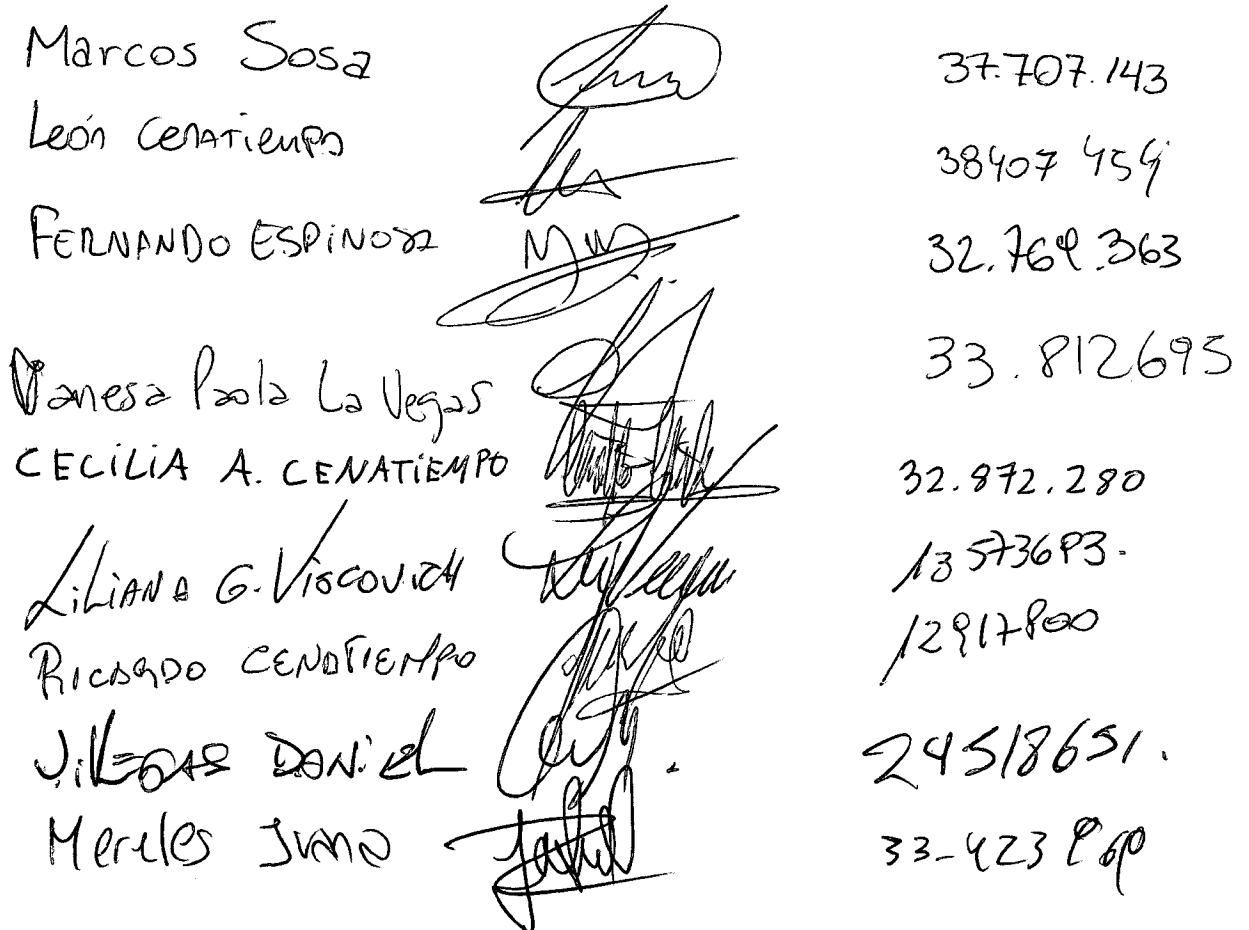 Marcos Sosa 37.707.143
León Cenatiempo 38407 454
FERNANDO ESPINOSA 32.769.363
Vanesa Paola La Vegas 33.812695
CECILIA A. CENATIEMPO 32.872.280
LILIANA G. VISCOVICH 13573693.
RICARDO CENATIEMPO 12917800
VILLEGAS DANIEL 24518651.
Mereles Juana 33-423